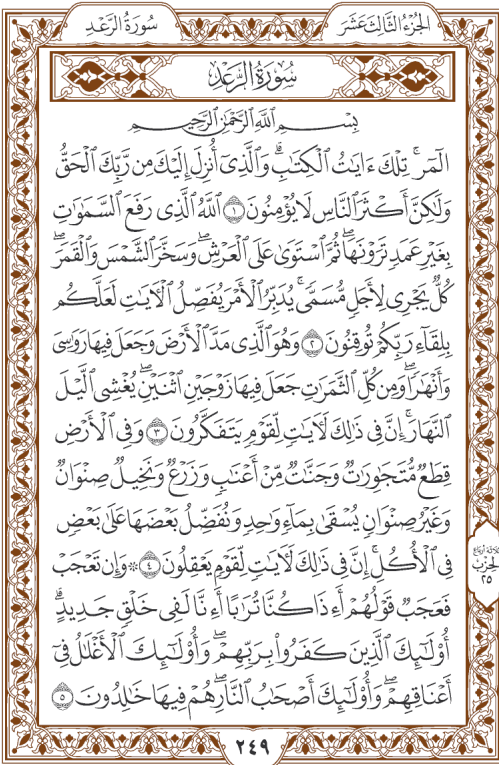 سُورَةُ الرَّعْدِ
الجُزْءُ الثَّالِثَ عَشَرَ
سُورَةُ الرَّعْدِ
بِسْمِ اللَّهِ الرَّحْمَٰنِ الرَّحِيمِ
الٓمٓرۚ تِلْكَ ءَايَٰتُ ٱلْكِتَٰبِۗ وَٱلَّذِىٓ أُنزِلَ إِلَيْكَ مِن رَّبِّكَ ٱلْحَقُّ
وَلَٰكِنَّ أَكْثَرَ ٱلنَّاسِ لَا يُؤْمِنُونَ ١ ٱللَّهُ ٱلَّذِى رَفَعَ ٱلسَّمَٰوَٰتِ
بِغَيْرِ عَمَدٍ تَرَوْنَهَاۖ ثُمَّ ٱسْتَوَىٰ عَلَى ٱلْعَرْشِۖ وَسَخَّرَ ٱلشَّمْسَ وَٱلْقَمَرَۖ
كُلٌّ يَجْرِى لِأَجَلٍ مُّسَمًّىۚ يُدَبِّرُ ٱلْأَمْرَ يُفَصِّلُ ٱلْءَايَٰتِ لَعَلَّكُم
بِلِقَآءِ رَبِّكُمْ تُوقِنُونَ ٢ وَهُوَ ٱلَّذِى مَدَّ ٱلْأَرْضَ وَجَعَلَ فِيهَا رَوَٰسِىَ
وَأَنْهَٰرًاۖ وَمِن كُلِّ ٱلثَّمَرَٰتِ جَعَلَ فِيهَا زَوْجَيْنِ ٱثْنَيْنِۖ يُغْشِى ٱلَّيْلَ
ٱلنَّهَارَۚ إِنَّ فِى ذَٰلِكَ لَءَايَٰتٍ لِّقَوْمٍ يَتَفَكَّرُونَ ٣ وَفِى ٱلْأَرْضِ
قِطَعٌ مُّتَجَٰوِرَٰتٌ وَجَنَّٰتٌ مِّنْ أَعْنَٰبٍ وَزَرْعٌ وَنَخِيلٌ صِنْوَانٌ
وَغَيْرُ صِنْوَانٍ يُسْقَىٰ بِمَآءٍ وَٰحِدٍ وَنُفَضِّلُ بَعْضَهَا عَلَىٰ بَعْضٍ
فِى ٱلْأُكُلِۚ إِنَّ فِى ذَٰلِكَ لَءَايَٰتٍ لِّقَوْمٍ يَعْقِلُونَ ٤ ۞ وَإِن تَعْجَبْ
فَعَجَبٌ قَوْلُهُمْ أَءِذَا كُنَّا تُرَٰبًا أَءِنَّا لَفِى خَلْقٍ جَدِيدٍۗ
أُو۟لَٰٓئِكَ ٱلَّذِينَ كَفَرُوا۟ بِرَبِّهِمْۖ وَأُو۟لَٰٓئِكَ ٱلْأَغْلَٰلُ فِىٓ
أَعْنَاقِهِمْۖ وَأُو۟لَٰٓئِكَ أَصْحَٰبُ ٱلنَّارِۖ هُمْ فِيهَا خَٰلِدُونَ ٥
الحِزْبِ
٢٥
٢٤٩